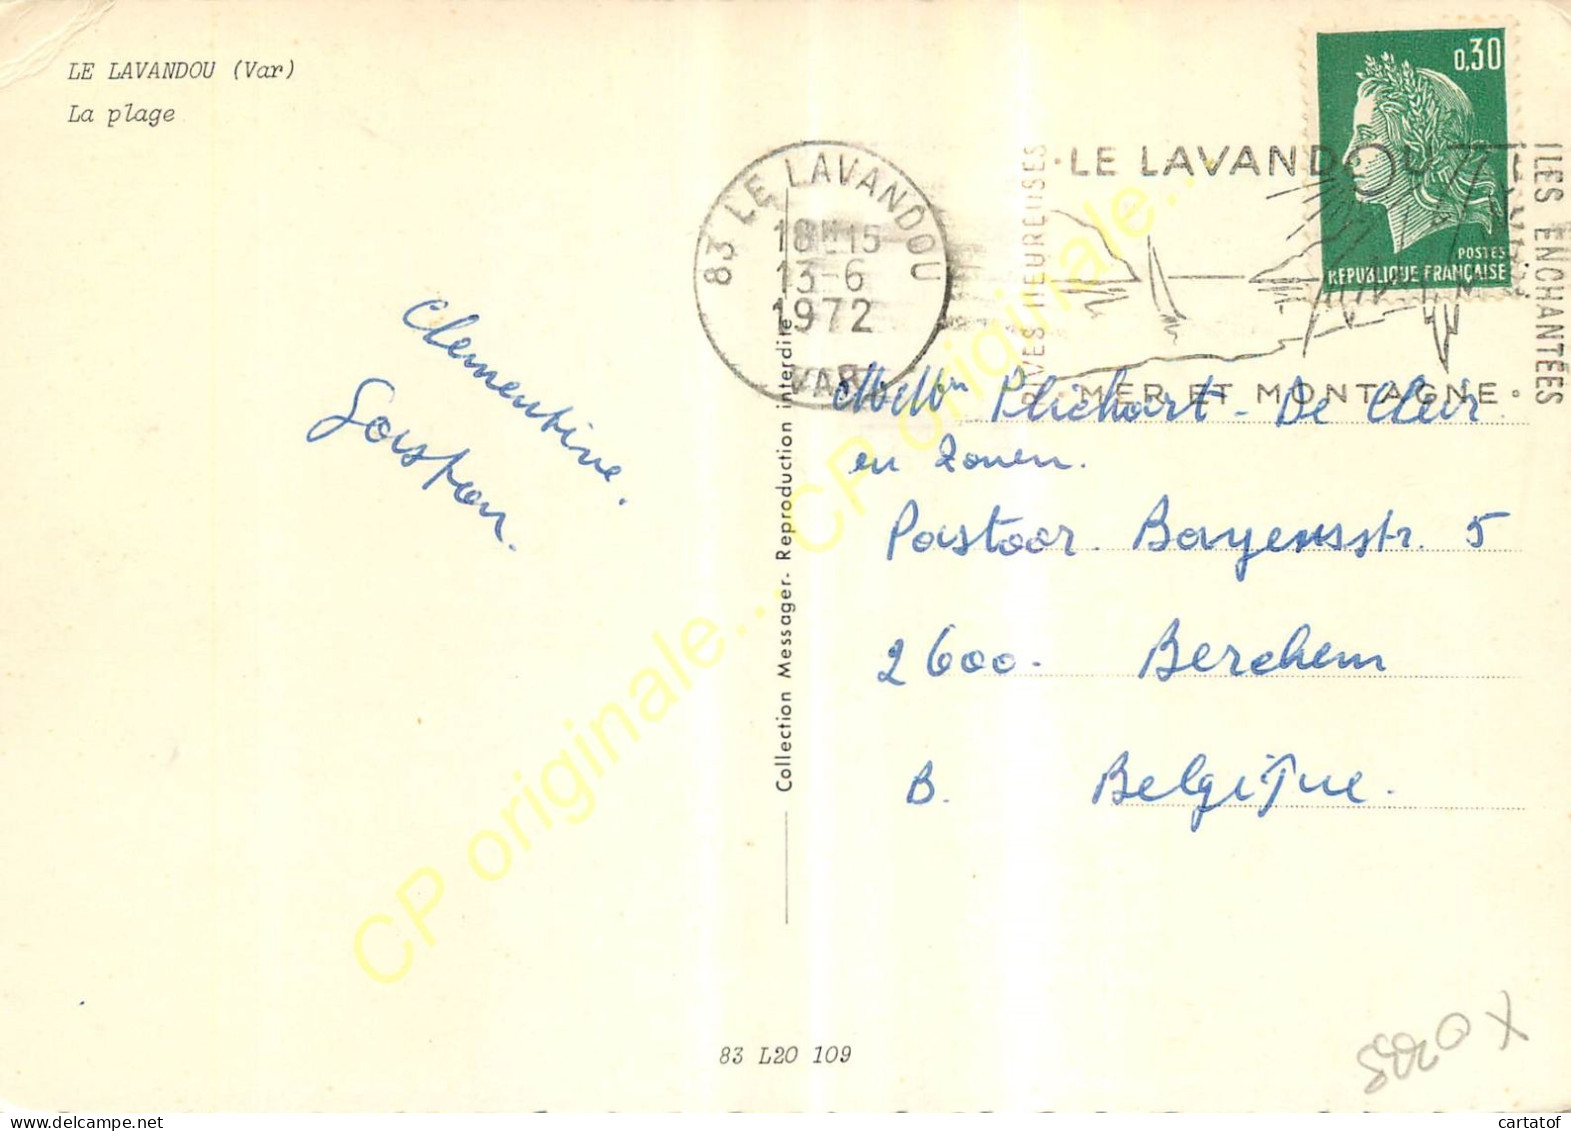 LE LAVANDOU (Var)
La plage
0,30
POSTES
REPUBLIQUE FRANÇAISE
83 LE LAVANDOU
18H15
13-6
1972
VAR
RIVES HEUREUSES
LE LAVANDOU
ILES ENCHANTEES
MER ET MONTAGNE
Clementine.
Gaston.
Plichart - De Cleir
en Zonen.
Pastoor Bayensstr. 5
2600. Berchem
B. Belgique.
Collection Messager- Reproduction interdite
CP originale... CP originale...
83 L20 109
cartatof